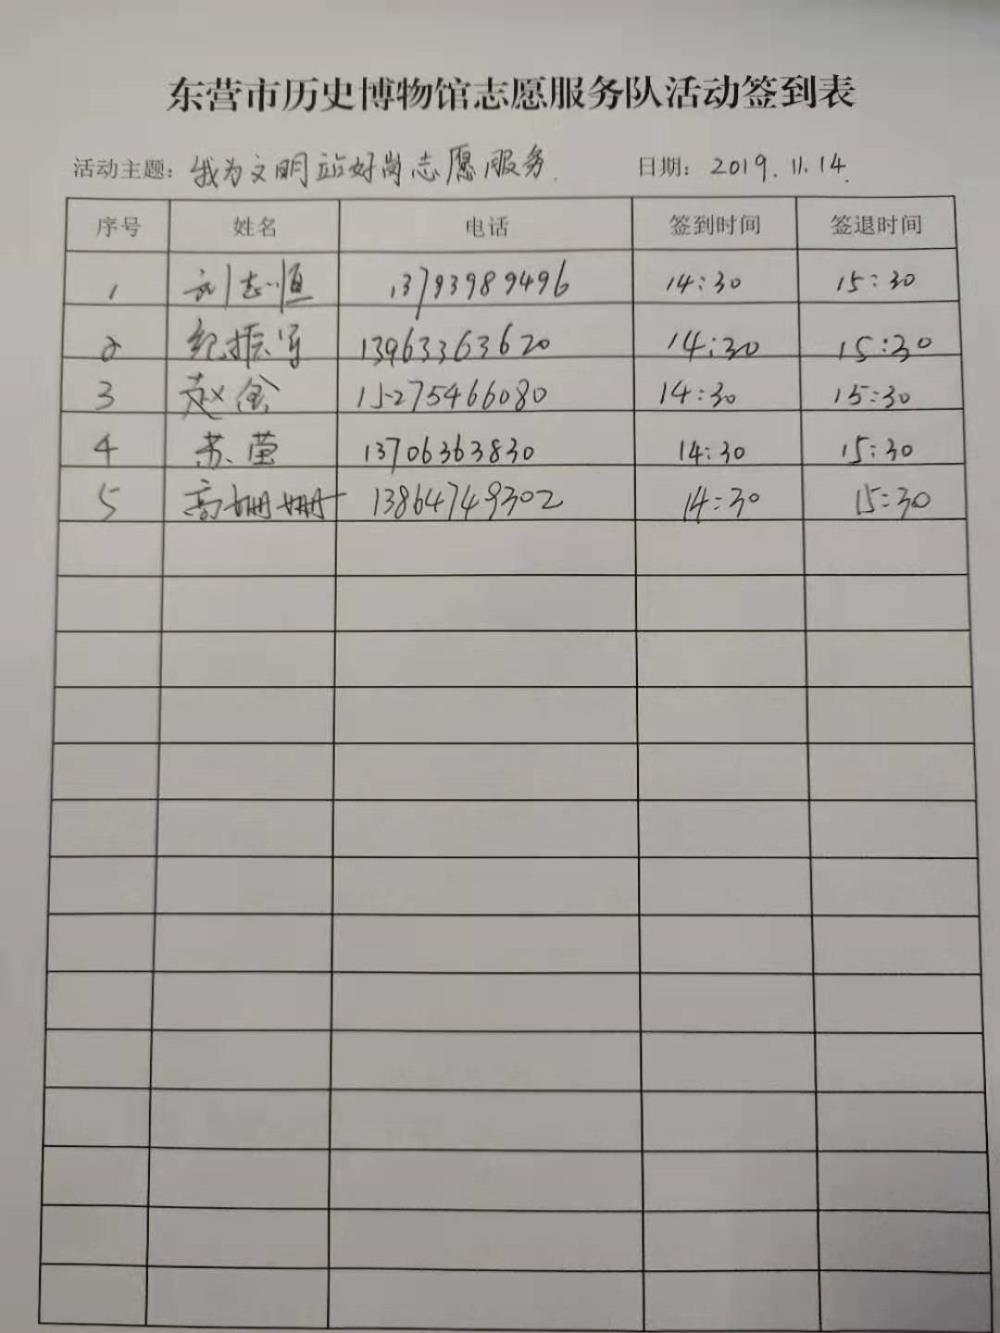 东营市历史博物馆志愿服务队活动签到表
活动主题：我为文明站好岗志愿服务. 日期：2019.11.14.
序号 姓名 电话 签到时间 签退时间
1 刘志恒 13793989496 14:30 15:30
2 纪振 13963363620 14:30 15:30
3 赵 15275466080 14:30 15:30
4 苏萤 13706363830 14:30 15:30
5 高姗姗 13864749302 14:30 15:30